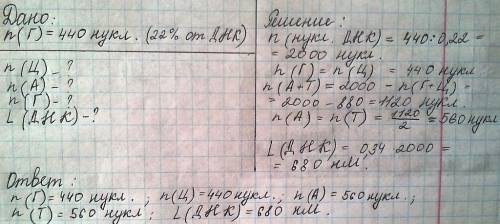 Дано:
n(Г) = 440 нукл. (22% от ДНК)
n(Ц) - ?
n(А) - ?
n(Г) - ?
L(ДНК) - ?
Решение:
n(нукл. ДНК) = 440:0,22 =
= 2000 нукл.
n(Г) = n(Ц) = 440 нукл
n(А+Т) = 2000 - n(Г+Ц) =
= 2000 - 880 = 1120 нукл.
n(А) = n(Т) = 1120/2 = 560 нукл
L(ДНК) = 0,34 2000 =
= 680 нм.
Ответ:
n(Г) = 440 нукл.; n(Ц) = 440 нукл.; n(А) = 560 нукл.;
n(Т) = 560 нукл; L(ДНК) = 680 нм.